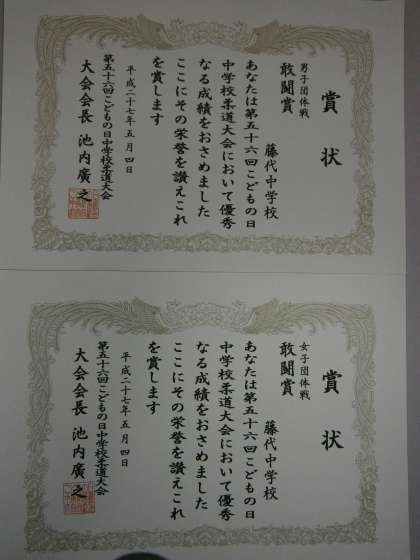 賞状
男子団体戦
敢闘賞
藤代中学校
あなたは第五十六回こどもの日
中学校柔道大会において優秀
なる成績をおさめました
ここにその栄誉を讃えこれ
を賞します
平成二十七年五月四日
第五十六回こどもの日中学校柔道大会
大会会長 池内廣之
賞状
女子団体戦
敢闘賞
藤代中学校
あなたは第五十六回こどもの日
中学校柔道大会において優秀
なる成績をおさめました
ここにその栄誉を讃えこれ
を賞します
平成二十七年五月四日
第五十六回こどもの日中学校柔道大会
大会会長 池内廣之